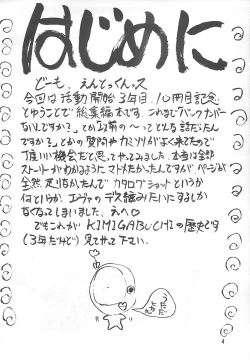 はじめに
どーも、えんどっくんっス
今回は活動開始3年目、10冊目記念
とゆうことで総集編本です。これまで「バックナンバー
ないんですか?」とか「以前の〜ってどんな話だったん
ですか?」とかの質問やカミソリがよく来てたので
良い機会だと思ってやってみました。本当は全部
ストーリーがわかるようにマトメたかったんですが、ページが
全然足りなかったんでカタログショットというか
何というか、エヴァのデス編みたいにするしか
なくなってしまいました。えへ♡
でもこれがKIMIGABUCHIの歴史です
(3年だけど)見てやって下さい。
4